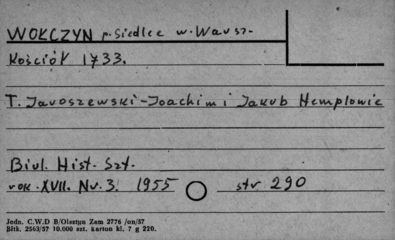 WOŁCZYN p. Siedlce w. Warsz.
Kościół 1733.
T. Jaroszewski-Joachim i Jakub Hemplowie
Biul. Hist. Szt.
rok. XVII. Nr. 3. 1955 str 290
Jedn. C.W.D B/Olsztyn Zam 2776 /on/57
Błtk. 2563/57 10.000 szt. karton kl. 7 g 220.